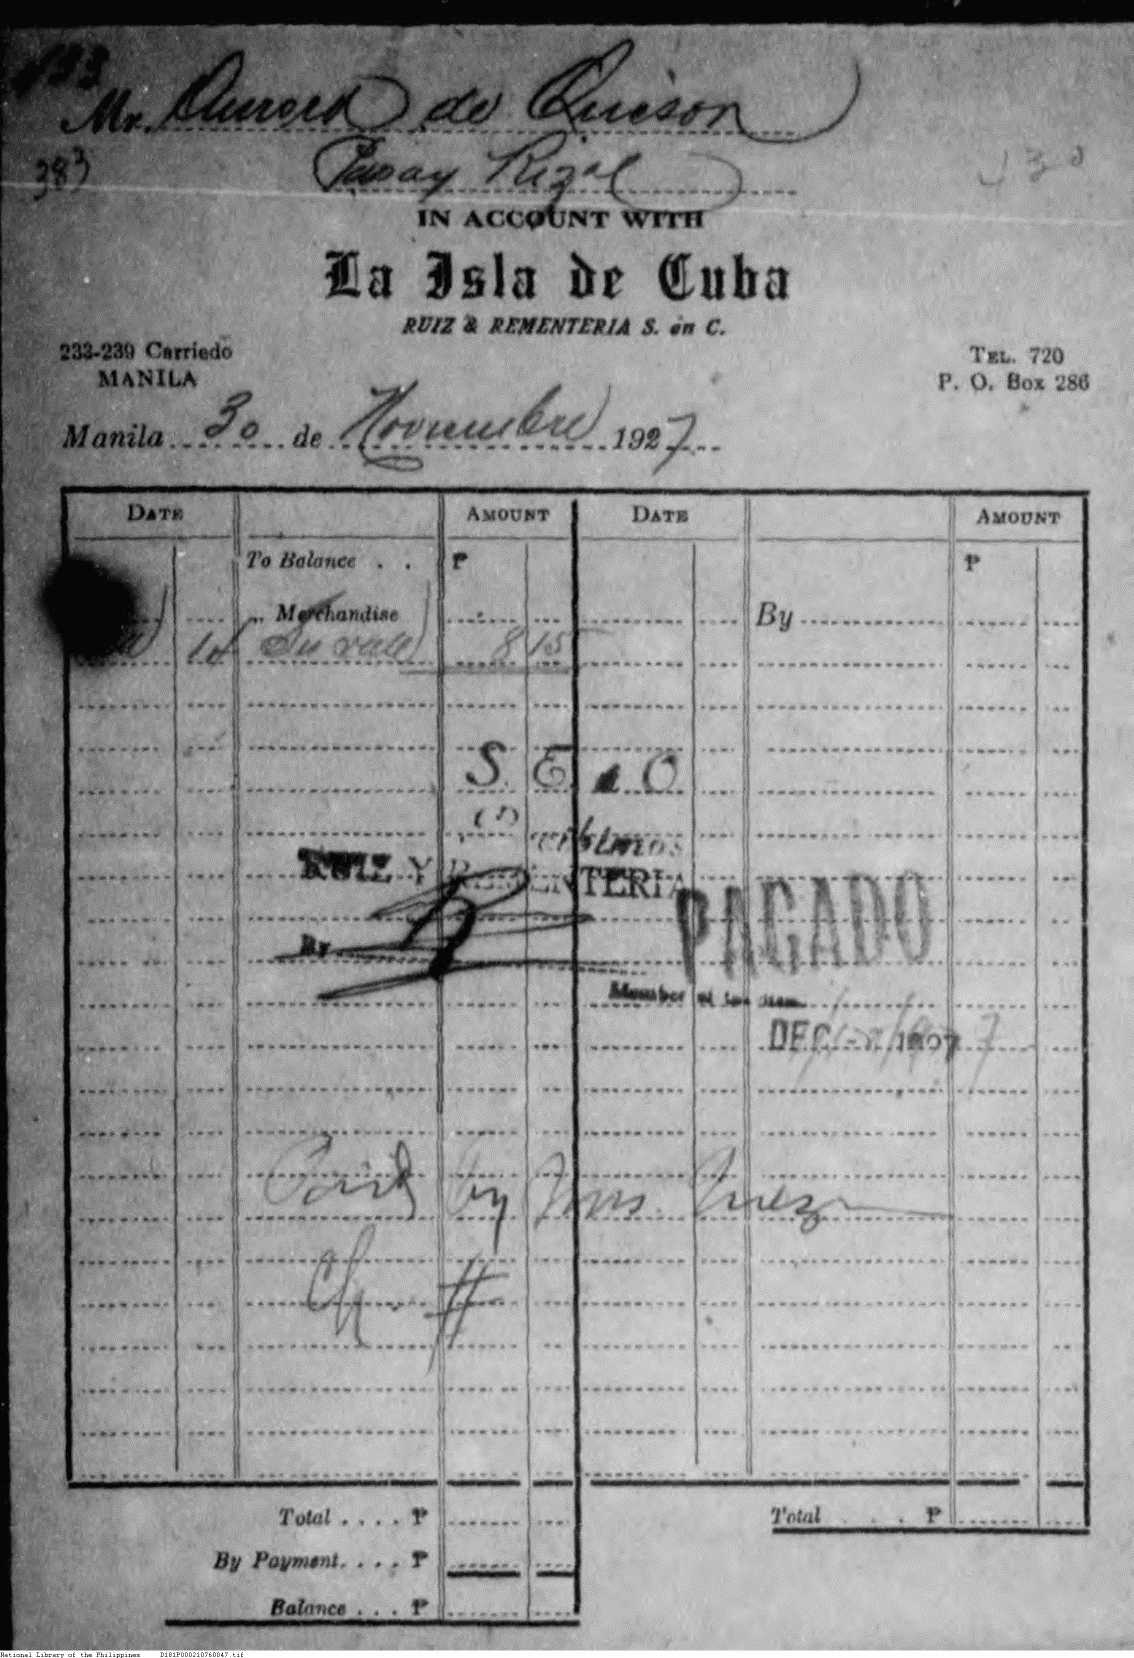 133
Mr. Aurora de Quison
383
Pasay Rizal
130
IN ACCOUNT WITH
La Isla de Cuba
RUIZ & REMENTERIA S. en C.
233-239 Carriedo
MANILA
TEL. 720
P. O. Box 286
Manila 30 de Noviembre 1927
DATE AMOUNT DATE AMOUNT
To Balance . . ₱ ₱
„ Merchandise By
14 Su vale 8 15
S. E. u O.
RUIZ Y REMENTERIA
PAGADO
By
Member of the firm
DEC 1927
Paid by Mrs. Quezon
Ch. #
Total . . . . ₱ Total . . . ₱
By Payment. . . . ₱
Balance . . . ₱
National Library of the Philippines D181P000210760047.tif